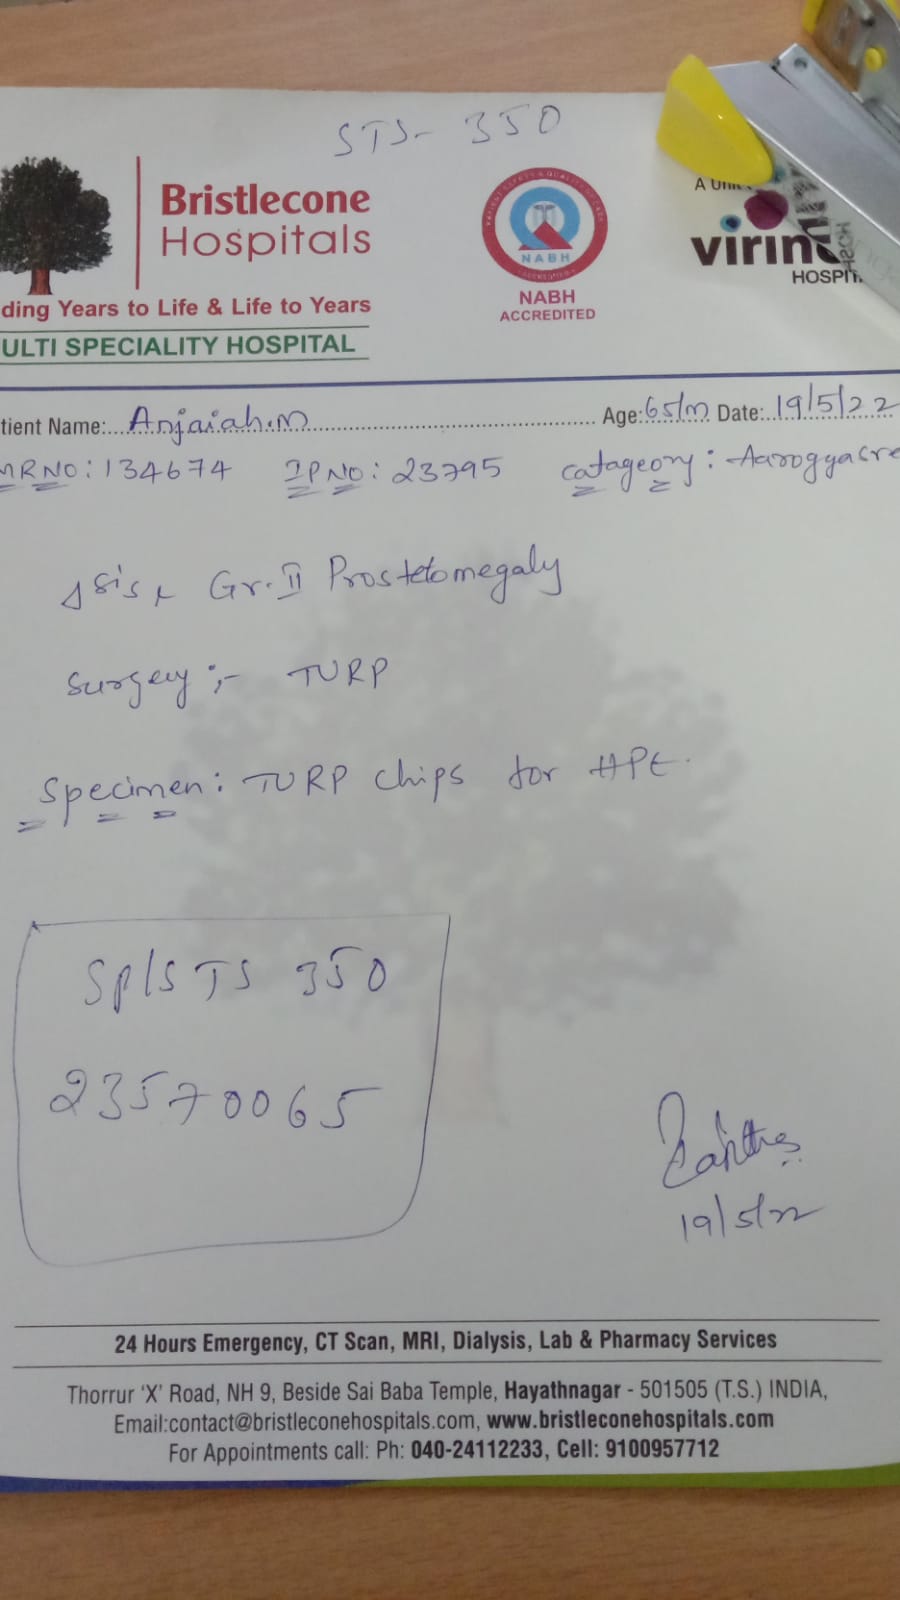 STS- 350
Bristlecone
Hospitals
ding Years to Life & Life to Years
ULTI SPECIALITY HOSPITAL
NABH
NABH
ACCREDITED
A Uni
virin
HOSPIT
tient Name: Anjaiah.m Age: 65/m Date: 19/5/22
MRNO: 134674 IPNO: 23795 catageory: Aarogyasre
Gr. II Prostetomegaly
surgery :- TURP
Specimen: TURP chips for HPE.
SP/STS 350
23570065
19/5/22
24 Hours Emergency, CT Scan, MRI, Dialysis, Lab & Pharmacy Services
Thorrur 'X' Road, NH 9, Beside Sai Baba Temple, Hayathnagar - 501505 (T.S.) INDIA,
Email:contact@bristleconehospitals.com, www.bristleconehospitals.com
For Appointments call: Ph: 040-24112233, Cell: 9100957712